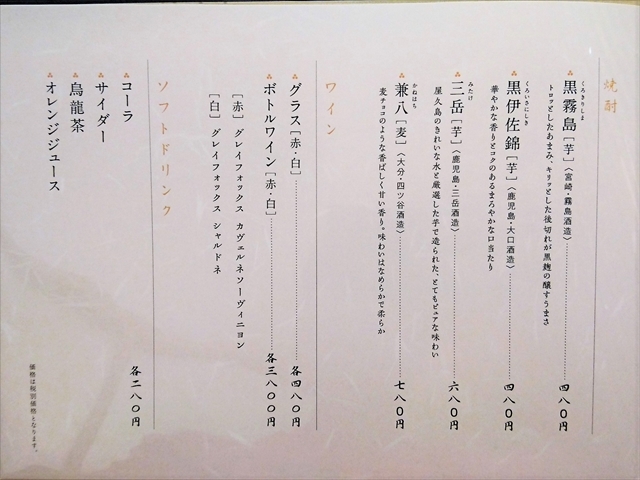 焼酎
くろきりしま
黒霧島［芋］〈宮崎・霧島酒造〉 四八〇円
トロッとしたあまみ、キリッとした後切れが黒麹の醸すうまさ
くろいさにしき
黒伊佐錦［芋］〈鹿児島・大口酒造〉 四八〇円
華やかな香りとコクのあるまろやかな口当たり
みたけ
三岳［芋］〈鹿児島・三岳酒造〉 六八〇円
屋久島のきれいな水と厳選した芋で造られた、とてもピュアな味わい
かねはち
兼八［麦］〈大分・四ツ谷酒造〉 七八〇円
麦チョコのような香ばしく甘い香り。味わいはなめらかで柔らか
ワイン
グラス［赤・白］ 各四八〇円
ボトルワイン［赤・白］ 各三八〇〇円
［赤］グレイフォックス カヴェルネソーヴィニヨン
［白］グレイフォックス シャルドネ
ソフトドリンク
コーラ 各二八〇円
サイダー
烏龍茶
オレンジジュース
価格は税別価格となります。